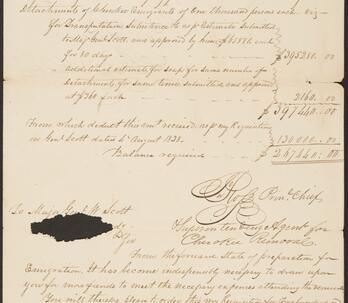 Detachments of Cherokee Emigrants of One thousand persons each. Viz
for Transportation Subsistence &c as pr Estimate Submitted
to Maj. Genl. Scott. was approved by him, @ $65880. each
for 80 days $395280..00
additional estimate for soap for same number of
Detachments, for same time. Submitted was approved
at $360 Each 2160..00
$397440:00
From which deduct this amt. received as pr my Requisition
on Genl. Scott dated 1st August 1838. 130000..00
Balance required $267440:00
Jno. Ross Prinl. Chief
To Major Genl. W. Scott
Superintending Agent for
Cherokee Removal
From the forward State of preparation for
Emigration. It has become indispensibly necessary to draw upon
you for more funds to meet the necessary expenses attending the removal
You will therefore please to order this my Requisition